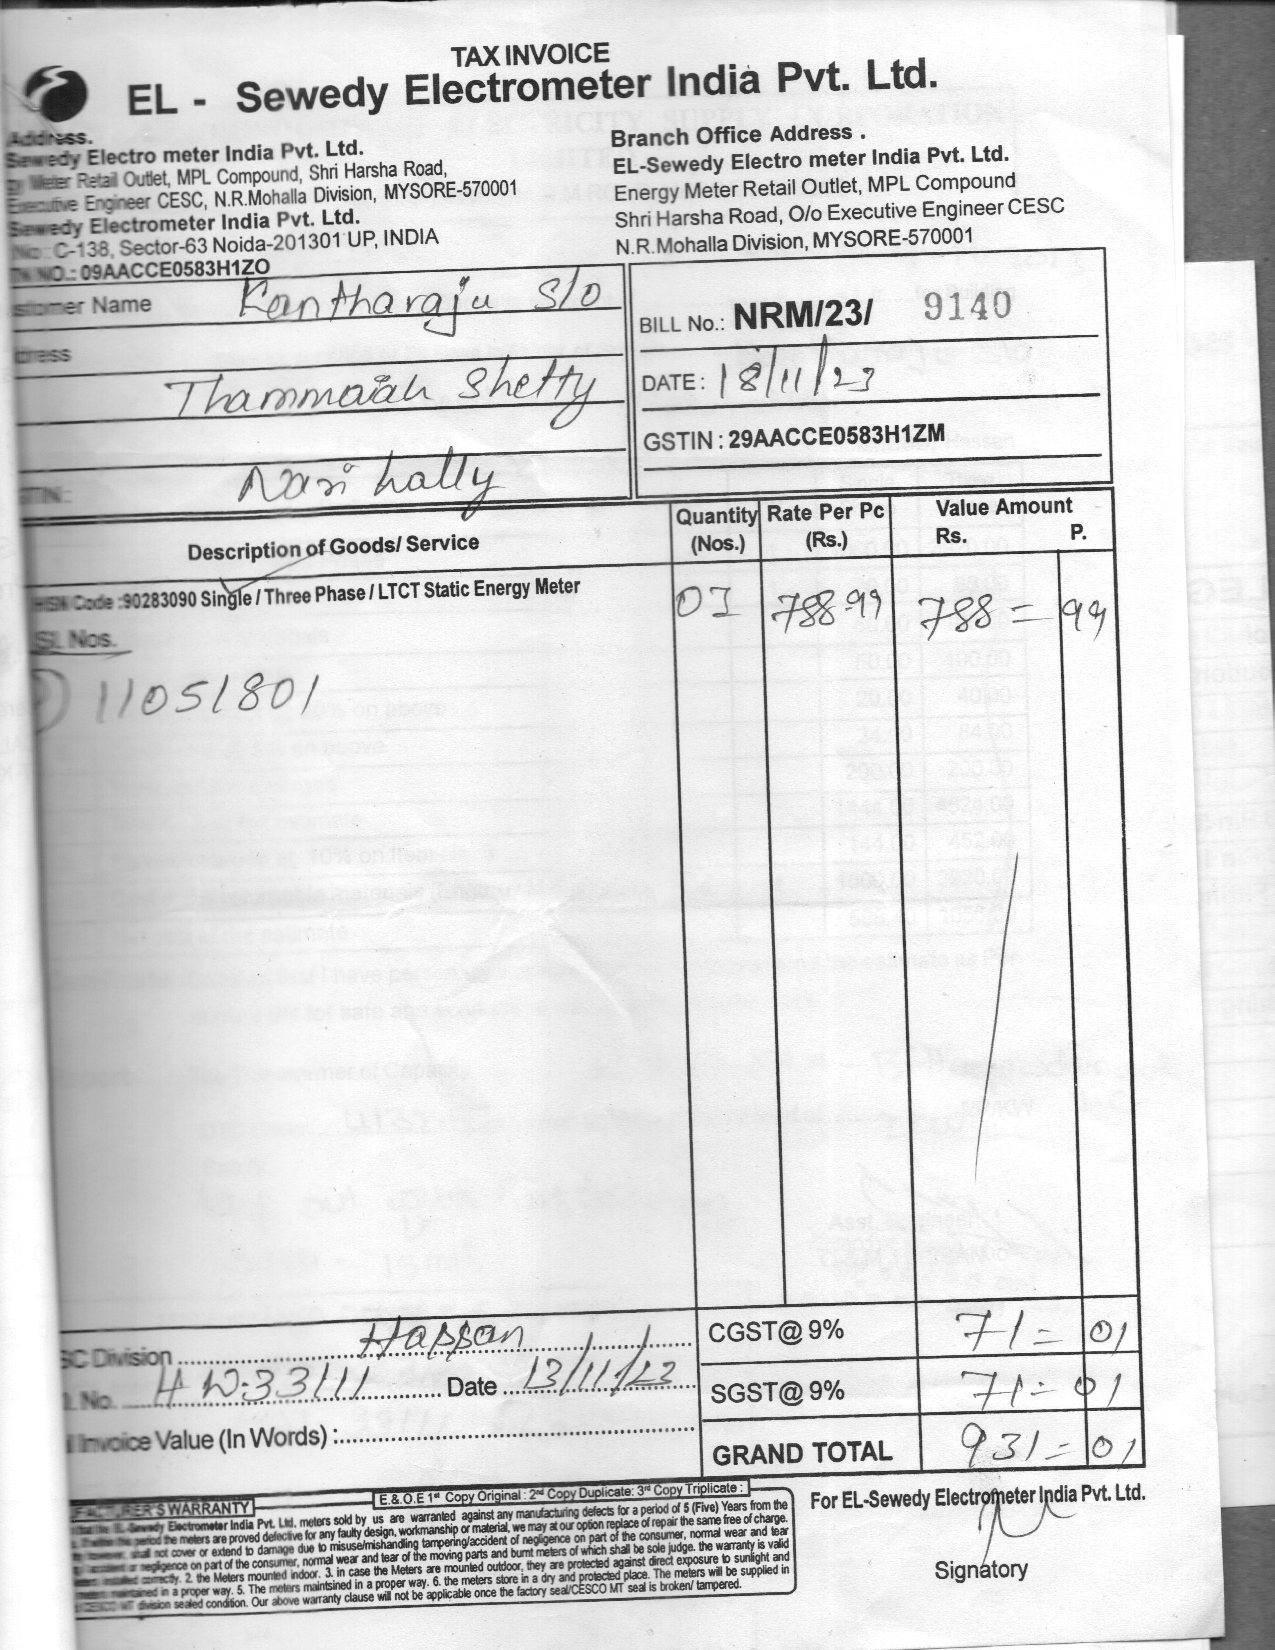 TAX INVOICE
EL - Sewedy Electrometer India Pvt. Ltd.
Address.
Sewedy Electro meter India Pvt. Ltd.
Meter Retail Outlet, MPL Compound, Shri Harsha Road,
Executive Engineer CESC, N.R.Mohalla Division, MYSORE-570001
Sewedy Electrometer India Pvt. Ltd.
No : C-138, Sector-63 Noida-201301 UP, INDIA
NO.: 09AACCE0583H1ZO
Branch Office Address .
EL-Sewedy Electro meter India Pvt. Ltd.
Energy Meter Retail Outlet, MPL Compound
Shri Harsha Road, O/o Executive Engineer CESC
N.R.Mohalla Division, MYSORE-570001
stomer Name Kantharaju S/O
dress
Thammaiah Shetty
Narihally
TIN :
BILL No.: NRM/23/ 9140
DATE : 18/11/23
GSTIN : 29AACCE0583H1ZM
Description of Goods/ Service
Quantity (Nos.)
Rate Per Pc (Rs.)
Value Amount
Rs. P.
HSN Code :90283090 Single / Three Phase / LTCT Static Energy Meter
01 788.99 788 = 99
SL Nos.
11051801
SC Division Hassan
No. HW:33111 Date 13/11/23
Invoice Value (In Words) :
CGST@ 9% 71 = 01
SGST@ 9% 71 = 01
GRAND TOTAL 931 = 01
E.& O.E 1st Copy Original : 2nd Copy Duplicate: 3rd Copy Triplicate :
FACTURER'S WARRANTY
Electrometer India Pvt. Ltd, meters sold by us are warranted against any manufacturing defects for a period of 5 (Five) Years from the
period the meters are proved defective for any faulty design, workmanship or material, we may at our option replace of repair the same free of charge.
however, shall not cover or extend to damage due to misuse/mishandling tampering/accident of negligence on part of the consumer, normal wear and tear
accident or negligence on part of the consumer, normal wear and tear of the moving parts and burnt meters of which shall be sole judge. the warranty is valid
installed correctly. 2. the Meters mounted indoor. 3. in case the Meters are mounted outdoor, they are protected against direct exposure to sunlight and
maintained in a proper way. 5. The meters maintsined in a proper way. 6. the meters store in a dry and protected place. The meters will be supplied in
/CESCO MT division sealed condition. Our above warranty clause will not be applicable once the factory seal/CESCO MT seal is broken/ tampered.
For EL-Sewedy Electrometer India Pvt. Ltd.
Signatory